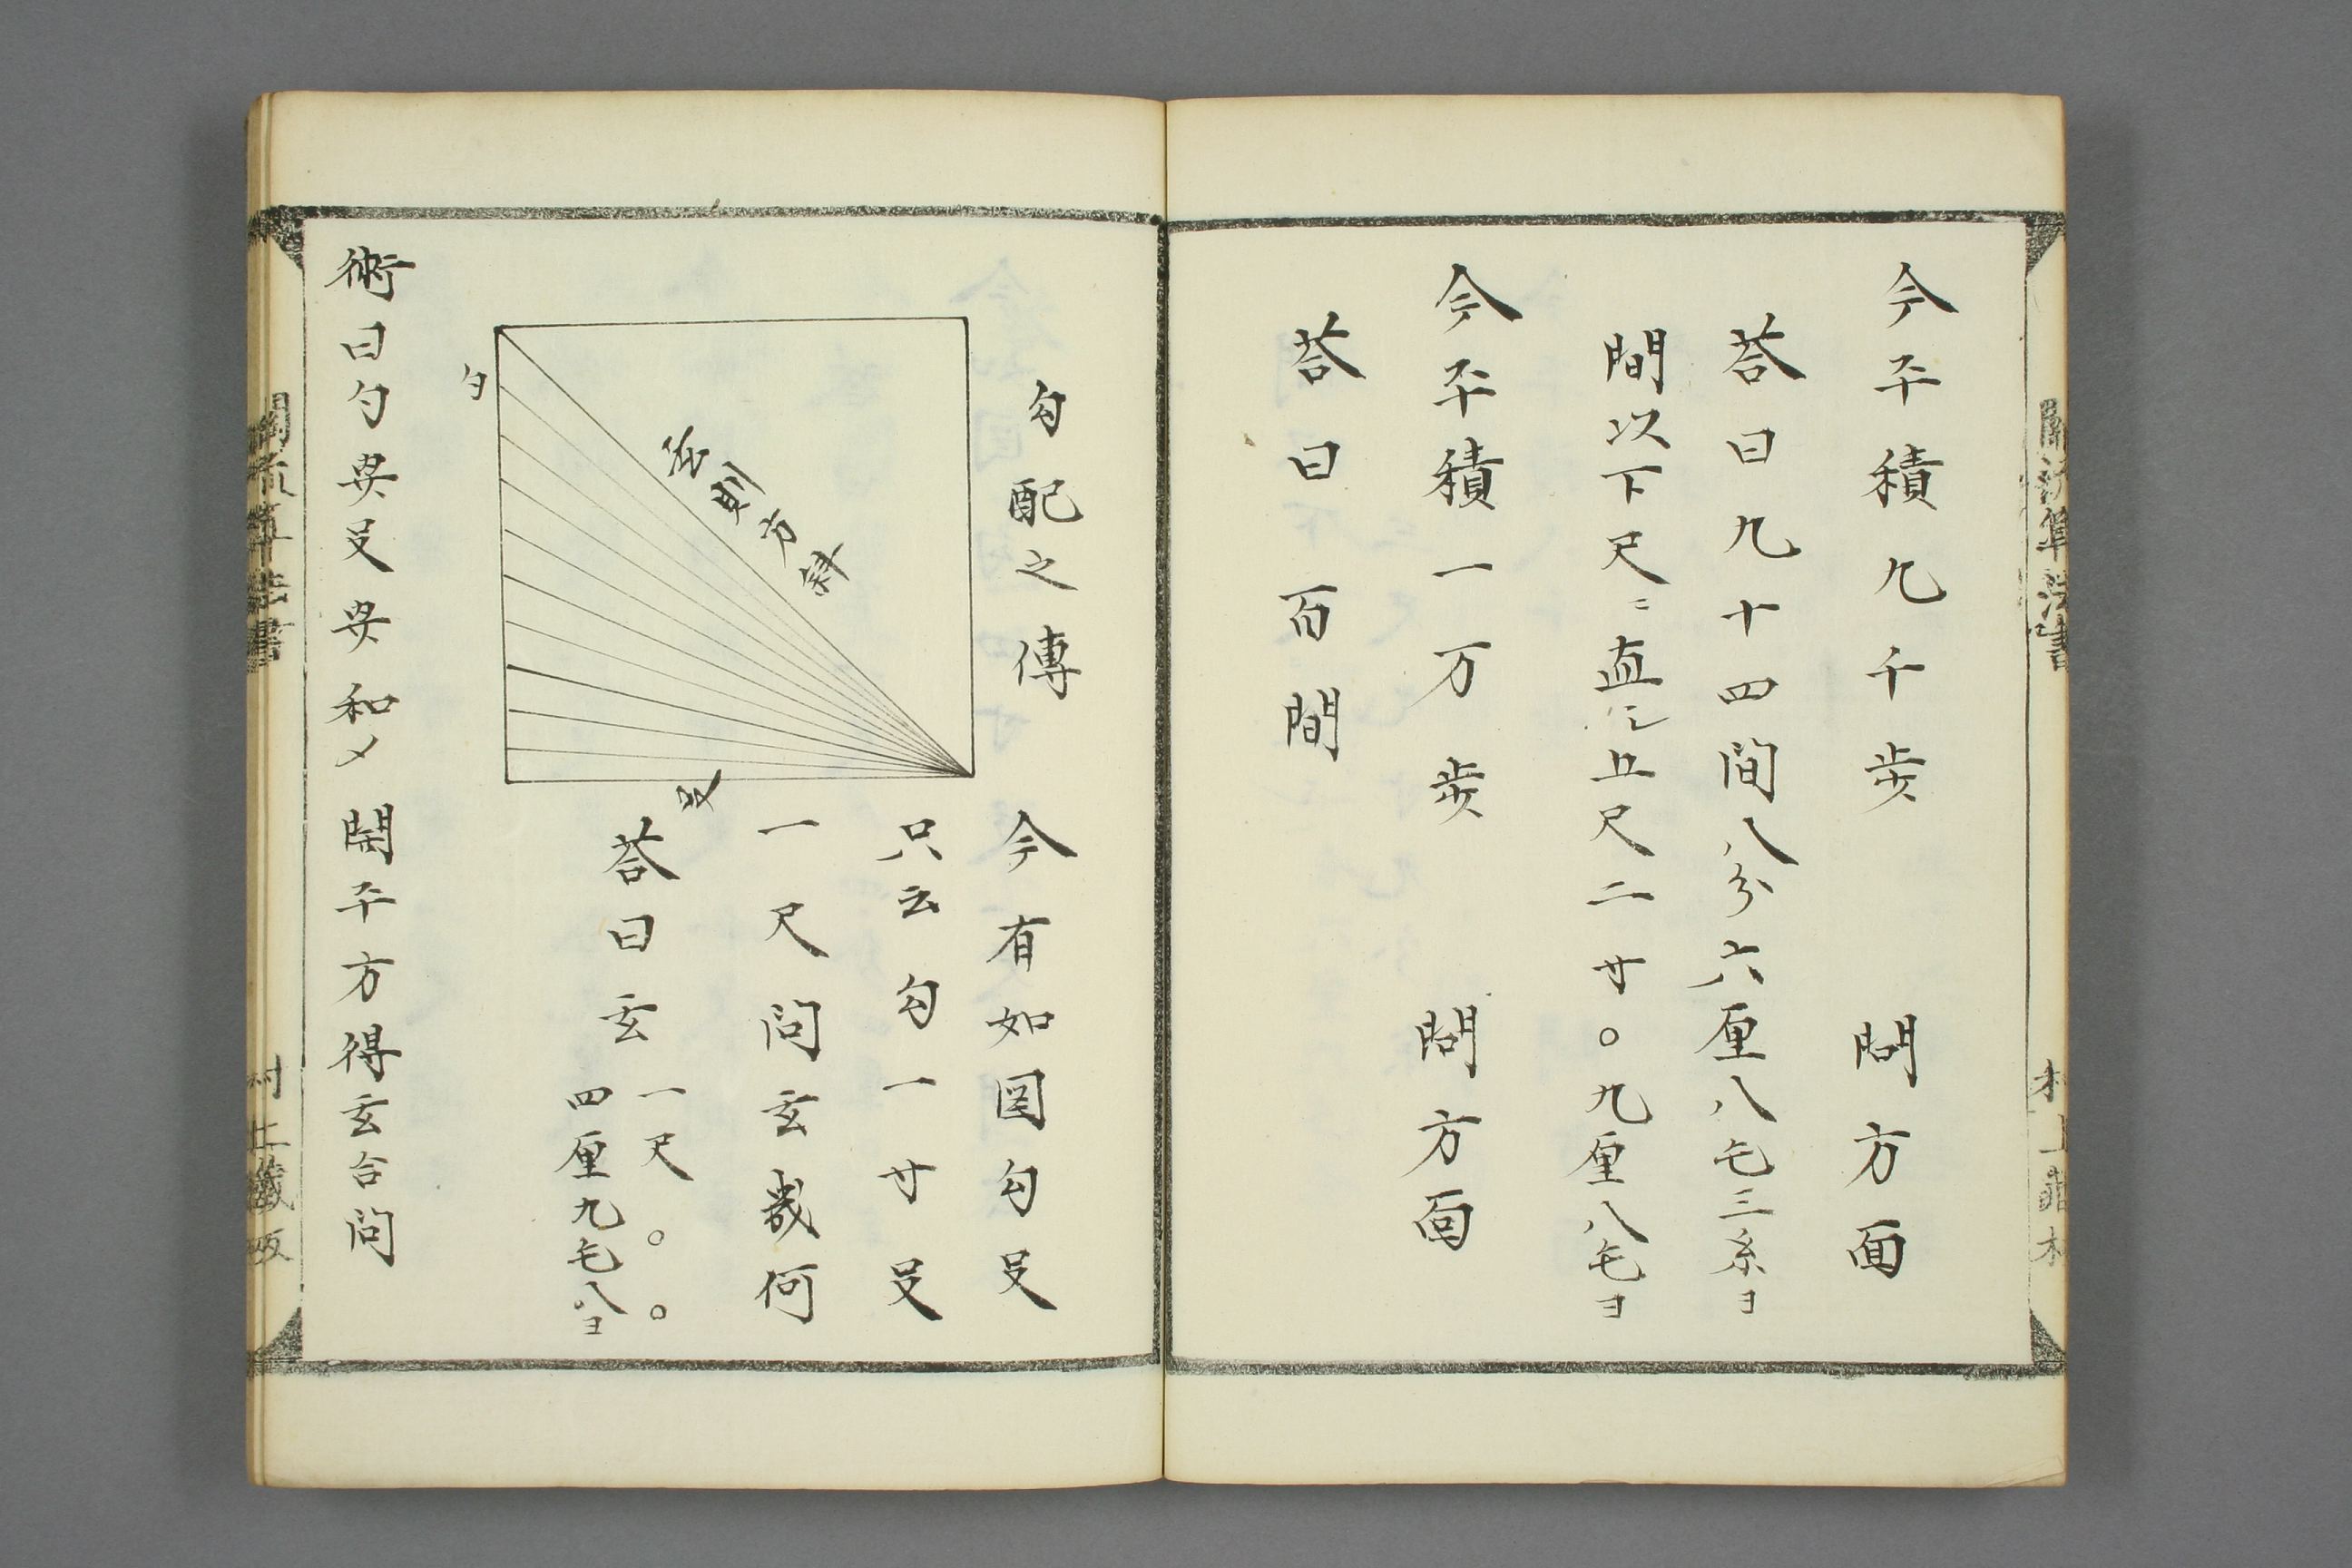 今平積九千歩　問方面
答曰九十四間八分六厘八毛三糸ヨ
間以下尺ニ直シ五尺二寸〇九厘八毛ヨ
今平積一万歩　問方面
答曰　百間
勾配之傳
勾
玄則方斜
㞋
今有如図勾㞋
只云勾一寸㞋
一尺問玄幾何
答曰玄一尺〇〇
四厘九毛八ヨ
術曰勾㒷㞋㒷和〆開平方得玄合問
関流算法書
村上蔵板